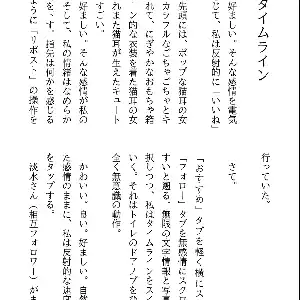 タイムライン
好ましい。そんな感情を電気
じて、私は反射的に「いいね
先頭には、ポップな猫耳の女
カラフルなごちゃごちゃとキ
れて、にぎやかなおもちゃ箱
ーン的な衣装を着た猫耳の女
れまた猫耳が生えたキュート
すごい。
好ましい。そんな感情が私の
そして、私の情緒はなめらか
を下す。指先は何かを感じる
ように「リポスト」の操作を
行っていた。
さて。
「おすすめ」タブを軽く横にス
「フォロー」タブを無感情にスクロ
すいと遡る。無限の文字情報と写真
択しつつ、私はタイムラインをスイ
いく。それはトイレのドアノブを
全く無意識の動作。
かわいい。良い。好ましい。自然
た感情のままに、私は反射的な速度
をタップする。
淡水さん（相互フォロワー）がま